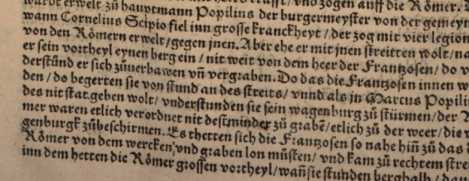 wardt erwelt zů hauptmann Popilius der burgermeyster von der gemeyn
wann Cornelius Scipio fiel inn grosse kranckheyt / der zog mit vier legion
von den Römern erwelt / gegen jnen. Aber ehe er mit jnen streitten wolt / na
er sein vortheyl eynen berg ein / nit weit von dem heer der Frantzosen / do w
derständ er sich zůuerbawen vñ vergraben. Do das die Frantzosen innen w
den / do begerten sie von stund an des streits / vnnd als jn Marcus Popili
des nit stat geben wolt / vnderstunden sie sein wagenburg zů stürmen / der
mer waren etlich verordnet nit destminder zů grabē / etlich zů der weer / die
genburgk zů beschirmen. Es thetten sich die Frantzosen so nahe hin zů das
Römer von dem wercken vnd graben lon můsten / vnd kam zů rechtem stre
inn dem hetten die Römer grossen vortheyl / wañ sie stunden berghalb / dau